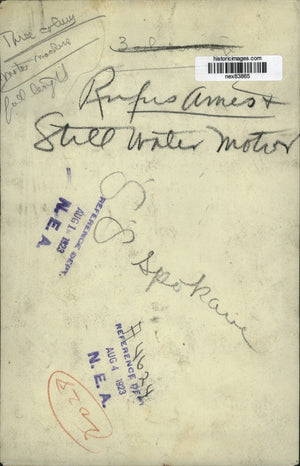 Three column
full length
historicimages.com
nex83865
Rufus Ames +
Still Water Motor
REFERENCE DEPT.
AUG 1 1923
N. E. A
S S Spokane
REFERENCE DEPT
AUG 4 1923
N. E. A.